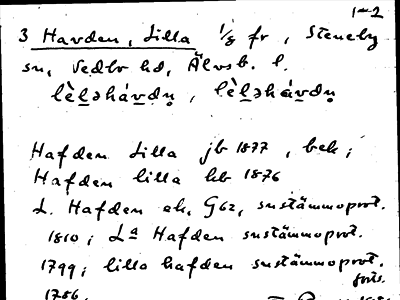 1-2
3 Havden, Lilla 1/8 fr, Steneby
sn, Vedbo hd, Älvsb. l.
lèl̲əháv̲dn̥, lèl̲əhàv̲dn̥
Hafden Lilla jb 1877, beh;
Hafden lilla hb 1876
L. Hafden ek. G62, sustämmoprot.
1810; La Hafden sustämmoprot.
1799; lilla hafden sustämmoprot.
forts.
1786.